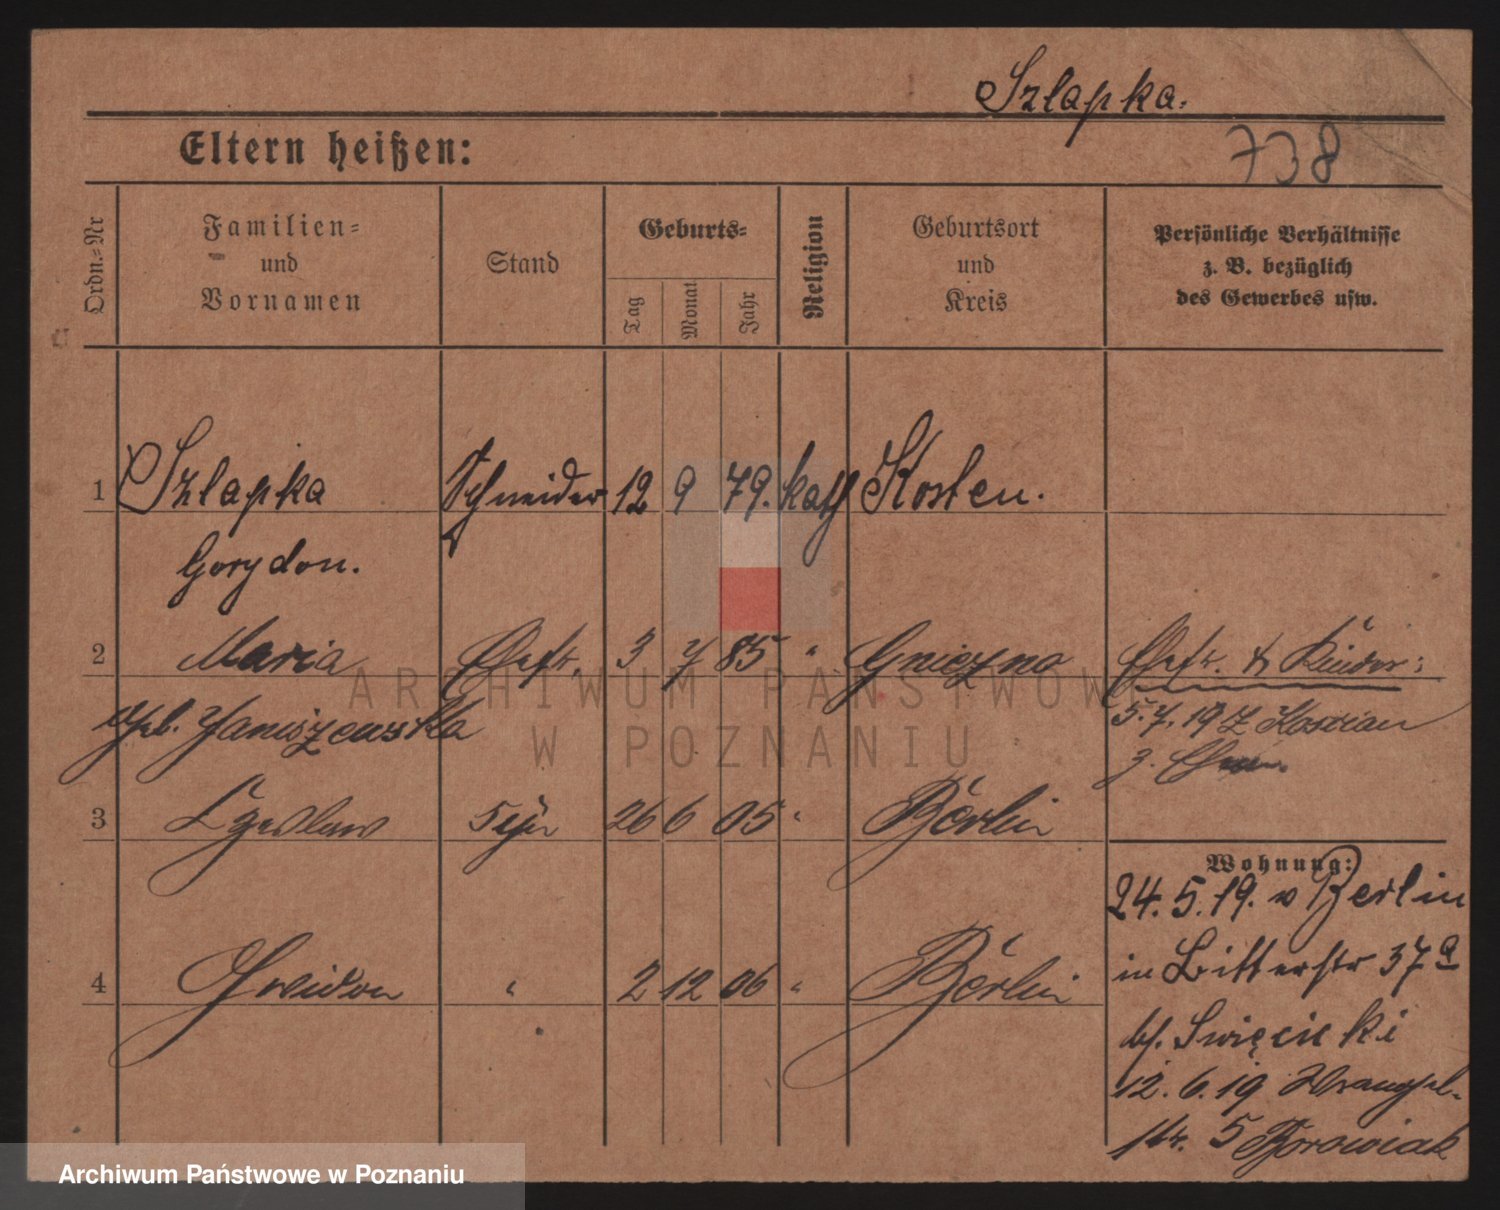 Szlapka.
738
Eltern heißen:
Ordn.-Nr
Familien-
und
Vornamen
Stand
Geburts-
Tag
Monat
Jahr
Religion
Geburtsort
und
Kreis
Persönliche Verhältnisse
z. B. bezüglich
des Gewerbes usw.
1 Szlapka Schneider 12 9 79. kath Kosten.
Gorydon.
2 Maria Ehefr. 3 7 85 " Gniezno Ehefr. & Kinder:
geb. Janiszewska
5.7.19 Z
z.
3 Czeslaw 26 6 05 " Berlin
Wohnung:
24.5.19. v Berlin
in Bitterstr 37a
4 Gwidon " 2 12 06 " Berlin
bf. Święcicki
12.6.19 Wrangel-
str. 5 Borowiak
ARCHIWUM PAŃSTWOWE
W POZNANIU
Archiwum Państwowe w Poznaniu